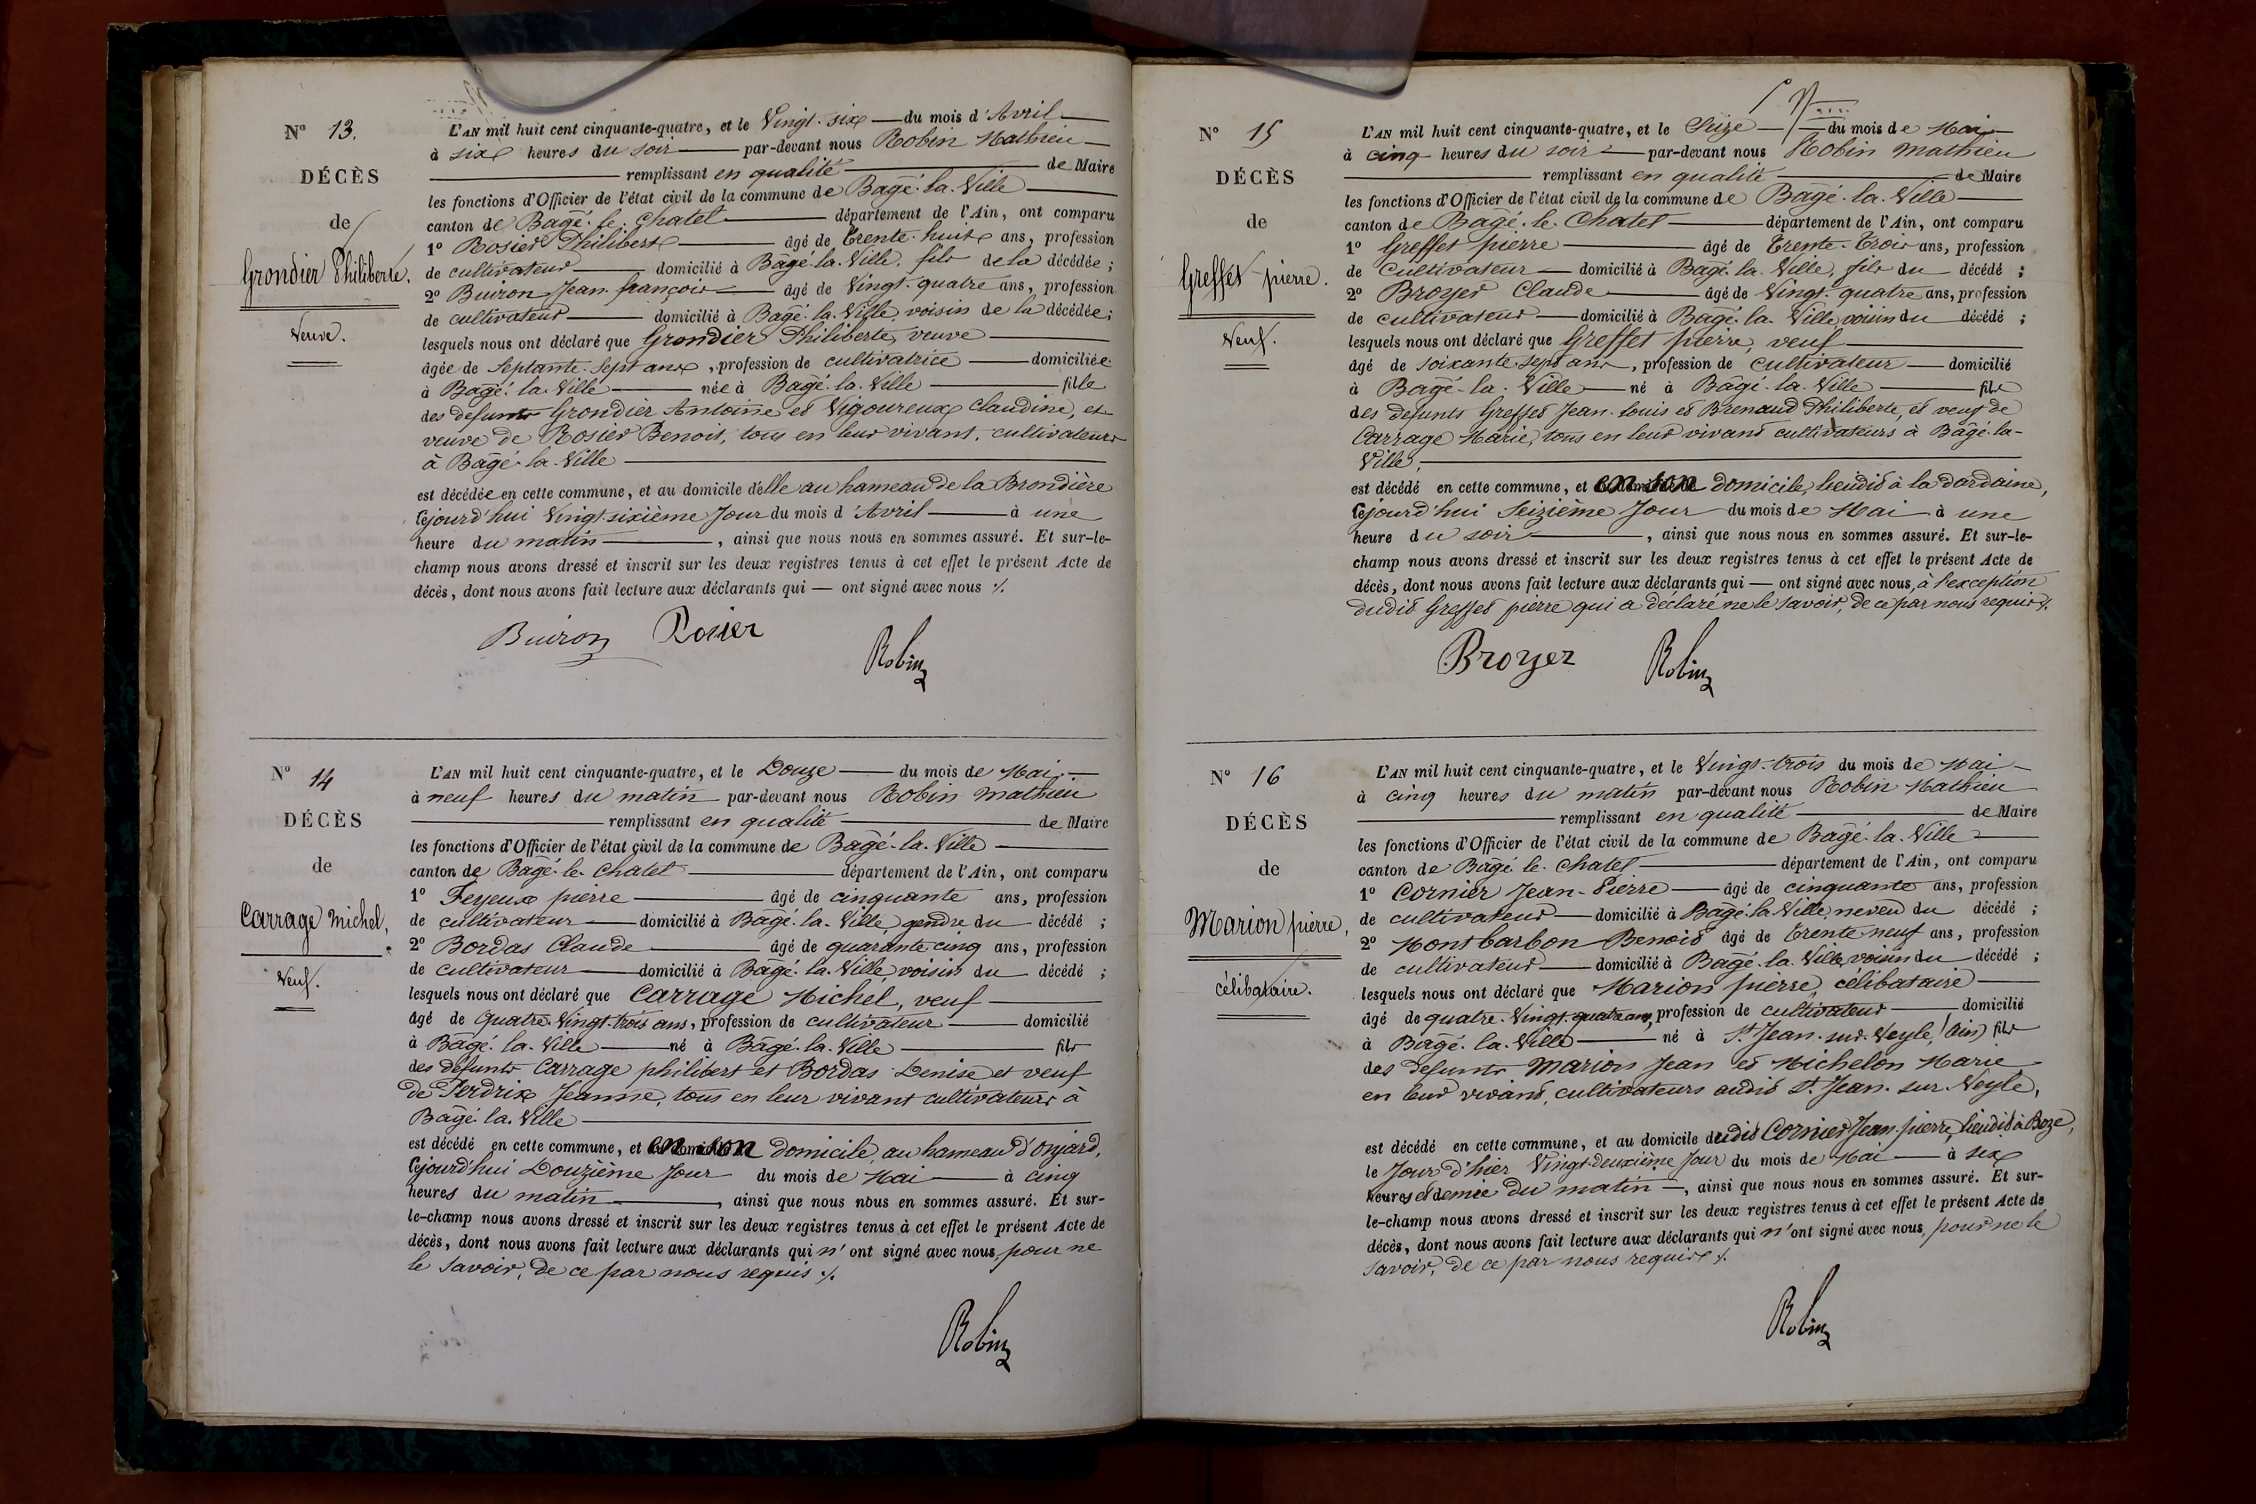 Nº 13.
DÉCÈS
de
Grondier Philiberte.
Veuve.
L'AN mil huit cent cinquante-quatre, et le Vingt-six du mois d'Avril
à six heures du soir par-devant nous Robin Mathieu
remplissant en qualité de Maire
les fonctions d'Officier de l'état civil de la commune de Bagé-la-Ville
canton de Bagé-le-Chatel département de l'Ain, ont comparu
1º Rosier Philibert âgé de Trente-huit ans, profession
de cultivateur domicilié à Bagé-la-Ville, fils de la décédée;
2º Buiron Jean-françois âgé de Vingt-quatre ans, profession
de cultivateur domicilié à Bagé-la-Ville, voisin de la décédée;
lesquels nous ont déclaré que Grondier Philiberte, veuve
âgée de Septante-Sept ans, profession de cultivatrice domiciliée
à Bagé-la-Ville née à Bagé-la-Ville fille
des défunts Grondier Antoine et Vigoureux Claudine, et
veuve de Rosier Benoit, tous en leur vivant, cultivateurs
à Bagé-la-Ville
est décédée en cette commune, et au domicile d'elle au hameau de la Brondière
Cejourd'hui Vingt-sixième Jour du mois d'Avril à une
heure du matin, ainsi que nous nous en sommes assuré. Et sur-le-
champ nous avons dressé et inscrit sur les deux registres tenus à cet effet le présent Acte de
décès, dont nous avons fait lecture aux déclarants qui — ont signé avec nous ./.
Buiron Rosier
Robin
Nº 14
DÉCÈS
de
Carrage Michel,
Veuf.
L'AN mil huit cent cinquante-quatre, et le Douze du mois de Mai
à neuf heures du matin par-devant nous Robin Mathieu
remplissant en qualité de Maire
les fonctions d'Officier de l'état civil de la commune de Bagé-la-Ville
canton de Bagé-le-Chatel département de l'Ain, ont comparu
1º Feyeux pierre âgé de cinquante ans, profession
de cultivateur domicilié à Bagé-la-Ville, gendre du décédé;
2º Bordas Claude âgé de quarante-cinq ans, profession
de cultivateur domicilié à Bagé-la-Ville voisin du décédé;
lesquels nous ont déclaré que Carrage Michel, veuf
âgé de Quatre-Vingt-trois ans, profession de cultivateur domicilié
à Bagé-la-Ville né à Bagé-la-Ville fils
des défunts Carrage philibert et Bordas Denise et veuf
de Perdrix Jeanne, tous en leur vivant cultivateurs à
Bagé-la-Ville
est décédé en cette commune, et en son domicile au hameau d'Onjard,
Cejourd'hui Douzième Jour du mois de Mai à cinq
heures du matin, ainsi que nous nous en sommes assuré. Et sur-
le-champ nous avons dressé et inscrit sur les deux registres tenus à cet effet le présent Acte de
décès, dont nous avons fait lecture aux déclarants qui n'ont signé avec nous, pour ne
le savoir, de ce par nous requis ./.
Robin
Nº 15
DÉCÈS
de
Greffet pierre.
Veuf.
L'AN mil huit cent cinquante-quatre, et le Seize du mois de Mai
à cinq heures du soir par-devant nous Robin Mathieu
remplissant en qualité de Maire
les fonctions d'Officier de l'état civil de la commune de Bagé-la-Ville
canton de Bagé-le-Chatel département de l'Ain, ont comparu
1º Greffet pierre âgé de Trente-Trois ans, profession
de Cultivateur domicilié à Bagé-la-Ville, fils du décédé;
2º Broyer Claude âgé de Vingt-quatre ans, profession
de cultivateur domicilié à Bagé-la-Ville voisin du décédé;
lesquels nous ont déclaré que Greffet pierre, veuf
âgé de soixante-sept ans, profession de cultivateur domicilié
à Bagé-la-Ville né à Bagé-la-Ville fils
des défunts Greffet Jean-Louis et Brenaud Philiberte, et veuf de
Carrage Marie, tous en leur vivant cultivateurs à Bagé-la-
Ville,
est décédé en cette commune, et en son domicile, lieudit à la dardaine,
Cejourd'hui Seizième Jour du mois de Mai à une
heure du soir, ainsi que nous nous en sommes assuré. Et sur-le-
champ nous avons dressé et inscrit sur les deux registres tenus à cet effet le présent Acte de
décès, dont nous avons fait lecture aux déclarants qui — ont signé avec nous, à l'exception
dudit Greffet pierre qui a déclaré ne le savoir, de ce par nous requis ./.
Broyer Robin
Nº 16
DÉCÈS
de
Marion pierre,
célibataire.
L'AN mil huit cent cinquante-quatre, et le Vingt-trois du mois de Mai
à cinq heures du matin par-devant nous Robin Mathieu
remplissant en qualité de Maire
les fonctions d'Officier de l'état civil de la commune de Bagé-la-Ville
canton de Bagé-le-Chatel département de l'Ain, ont comparu
1º Cornier Jean-Pierre âgé de cinquante ans, profession
de cultivateur domicilié à Bagé-la-Ville, neveu du décédé;
2º Montbarbon Benoit âgé de Trente neuf ans, profession
de cultivateur domicilié à Bagé-la-Ville, voisin du décédé;
lesquels nous ont déclaré que Marion pierre, célibataire
âgé de quatre-Vingt-quatre ans, profession de cultivateur domicilié
à Bagé-la-Ville né à St Jean-sur-Veyle, (Ain) fils
des défunts Marion Jean et Michelon Marie
en leur vivant, cultivateurs audit St Jean-sur-Veyle,
est décédé en cette commune, et au domicile dudit Cornier Jean-pierre, lieudit à Boze,
le Jour d'hier Vingt-deuxième Jour du mois de Mai à six
heures et demie du matin, ainsi que nous nous en sommes assuré. Et sur-
le-champ nous avons dressé et inscrit sur les deux registres tenus à cet effet le présent Acte de
décès, dont nous avons fait lecture aux déclarants qui n'ont signé avec nous, pour ne le
savoir, de ce par nous requis ./.
Robin